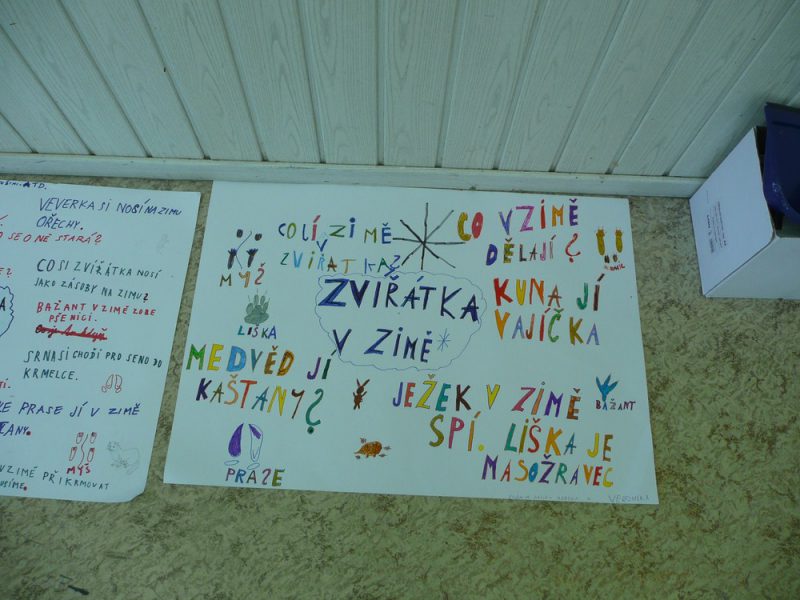 VEVERKA SI NOSÍ NA ZIMU
OŘECHY.
SE O NĚ STARÁ?
CO SI ZVÍŘÁTKA NOSÍ
JAKO ZÁSOBY NA ZIMU?
BAŽANT V ZIMĚ ZOBE
PŠENICI.
SRNA SI CHODÍ PRO SENO DO
KRMELCE.
PRASE JÍ V ZIMĚ
MYŠ
V ZIMĚ PŘIKRMOVAT
CO JÍ ZIMĚ
V
ZVÍŘATKA?
MYŠ
CO V ZIMĚ
DĚLAJÍ?
LIŠKA
ZVÍŘÁTKA
V ZIMĚ
KUNA JÍ
VAJÍČKA
MEDVĚD JÍ
KAŠTANY?
JEŽEK V ZIMĚ
SPÍ. LIŠKA JE
MASOŽRAVEC
BAŽANT
PRASE
VERONIKA